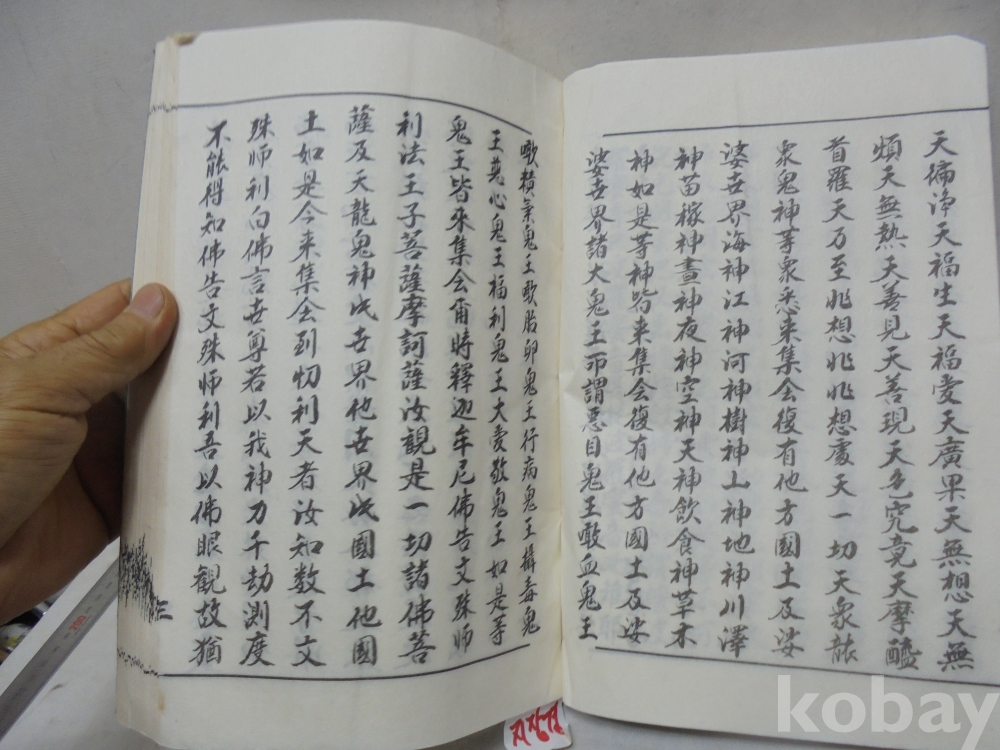 天徧淨天福生天福愛天廣果天無想天無
煩天無熱天善見天善現天色究竟天摩醯
首羅天乃至非想非非想處天一切天衆龍
衆鬼神等衆悉来集会復有他方國土及娑
婆世界海神江神河神樹神山神地神川澤
神苗稼神晝神夜神空神天神飲食神草木
神如是等神皆来集会復有他方國土及娑
婆世界諸大鬼王所謂悪目鬼王噉血鬼王
噉精氣鬼王噉胎卵鬼王行病鬼王攝毒鬼
王慈心鬼王福利鬼王大愛敬鬼王如是等
鬼王皆来集会爾時釋迦牟尼佛告文殊師
利法王子菩薩摩訶薩汝観是一切諸佛菩
薩及天龍鬼神此世界他世界此國土他國
土如是今来集会到忉利天者汝知数不文
殊師利白佛言世尊若以我神力千劫測度
不能得知佛告文殊師利吾以佛眼観故猶
三
지장경
200
kobay